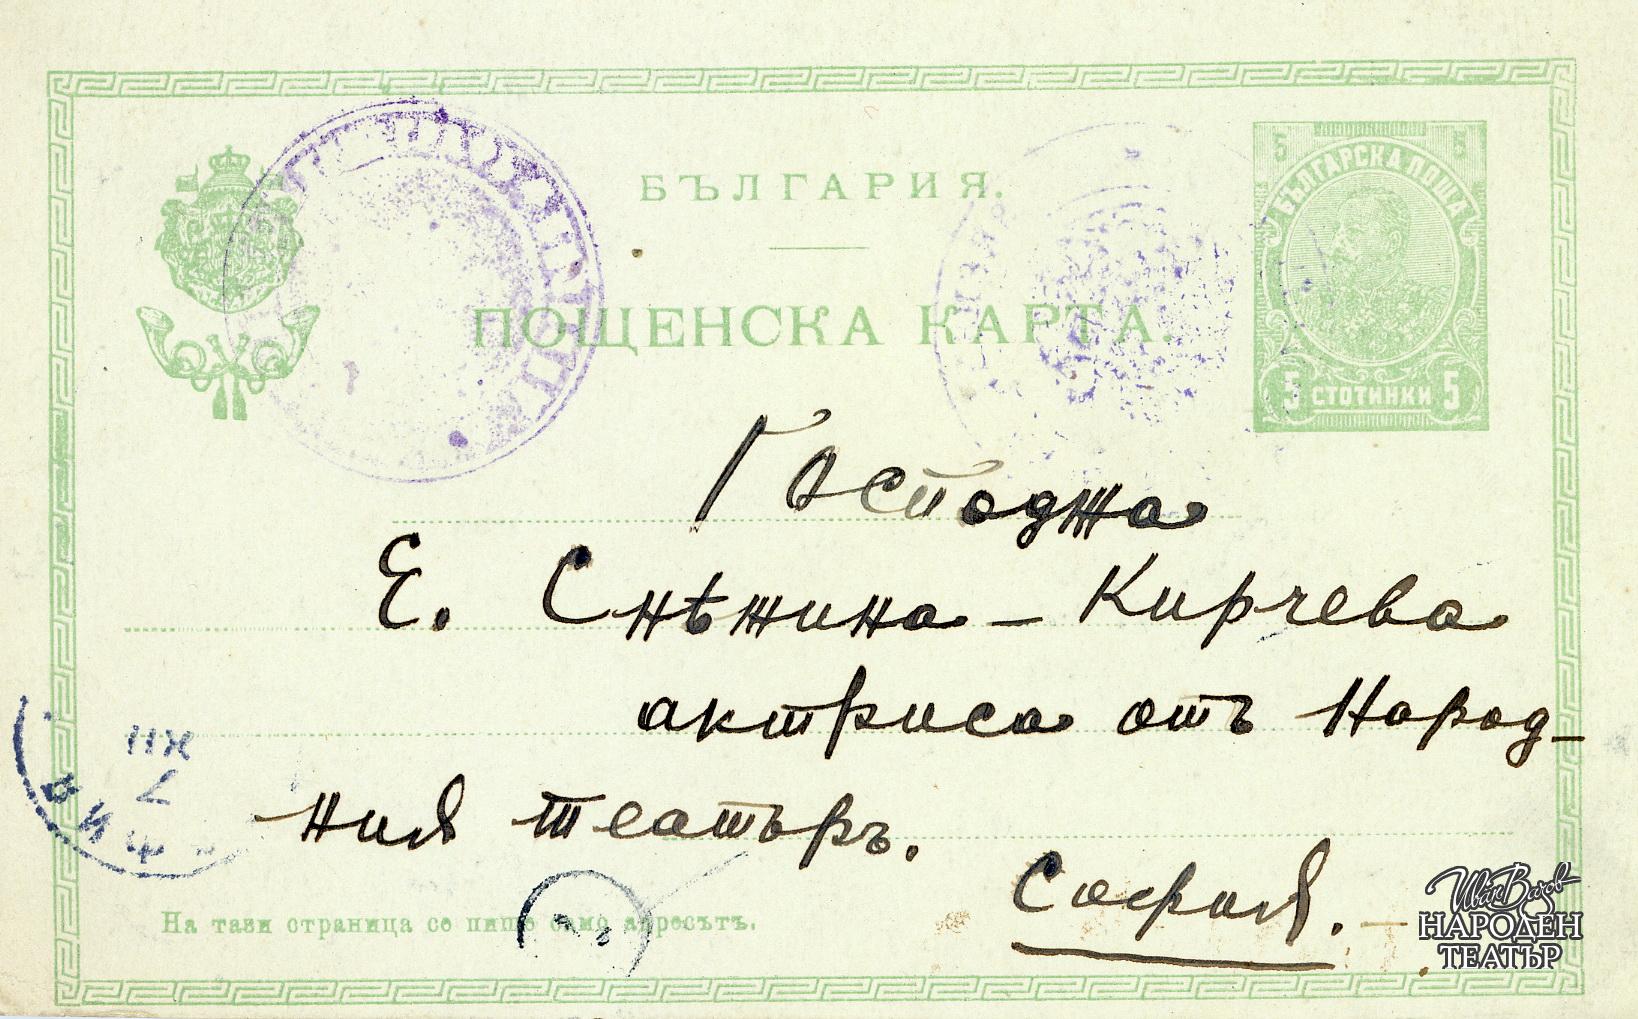 БЪЛГАРИЯ.
ПОЩЕНСКА КАРТА.
5 5
БЪЛГАРСКА ПОЩА
5 СТОТИНКИ 5
Господжа
Е. Снѣжина - Кирчева
актриса отъ Народ-
ния театъръ.
София. -
XII
7
На тази страница се пише само адресътъ.
Иван Вазов
НАРОДЕН
ТЕАТЪР